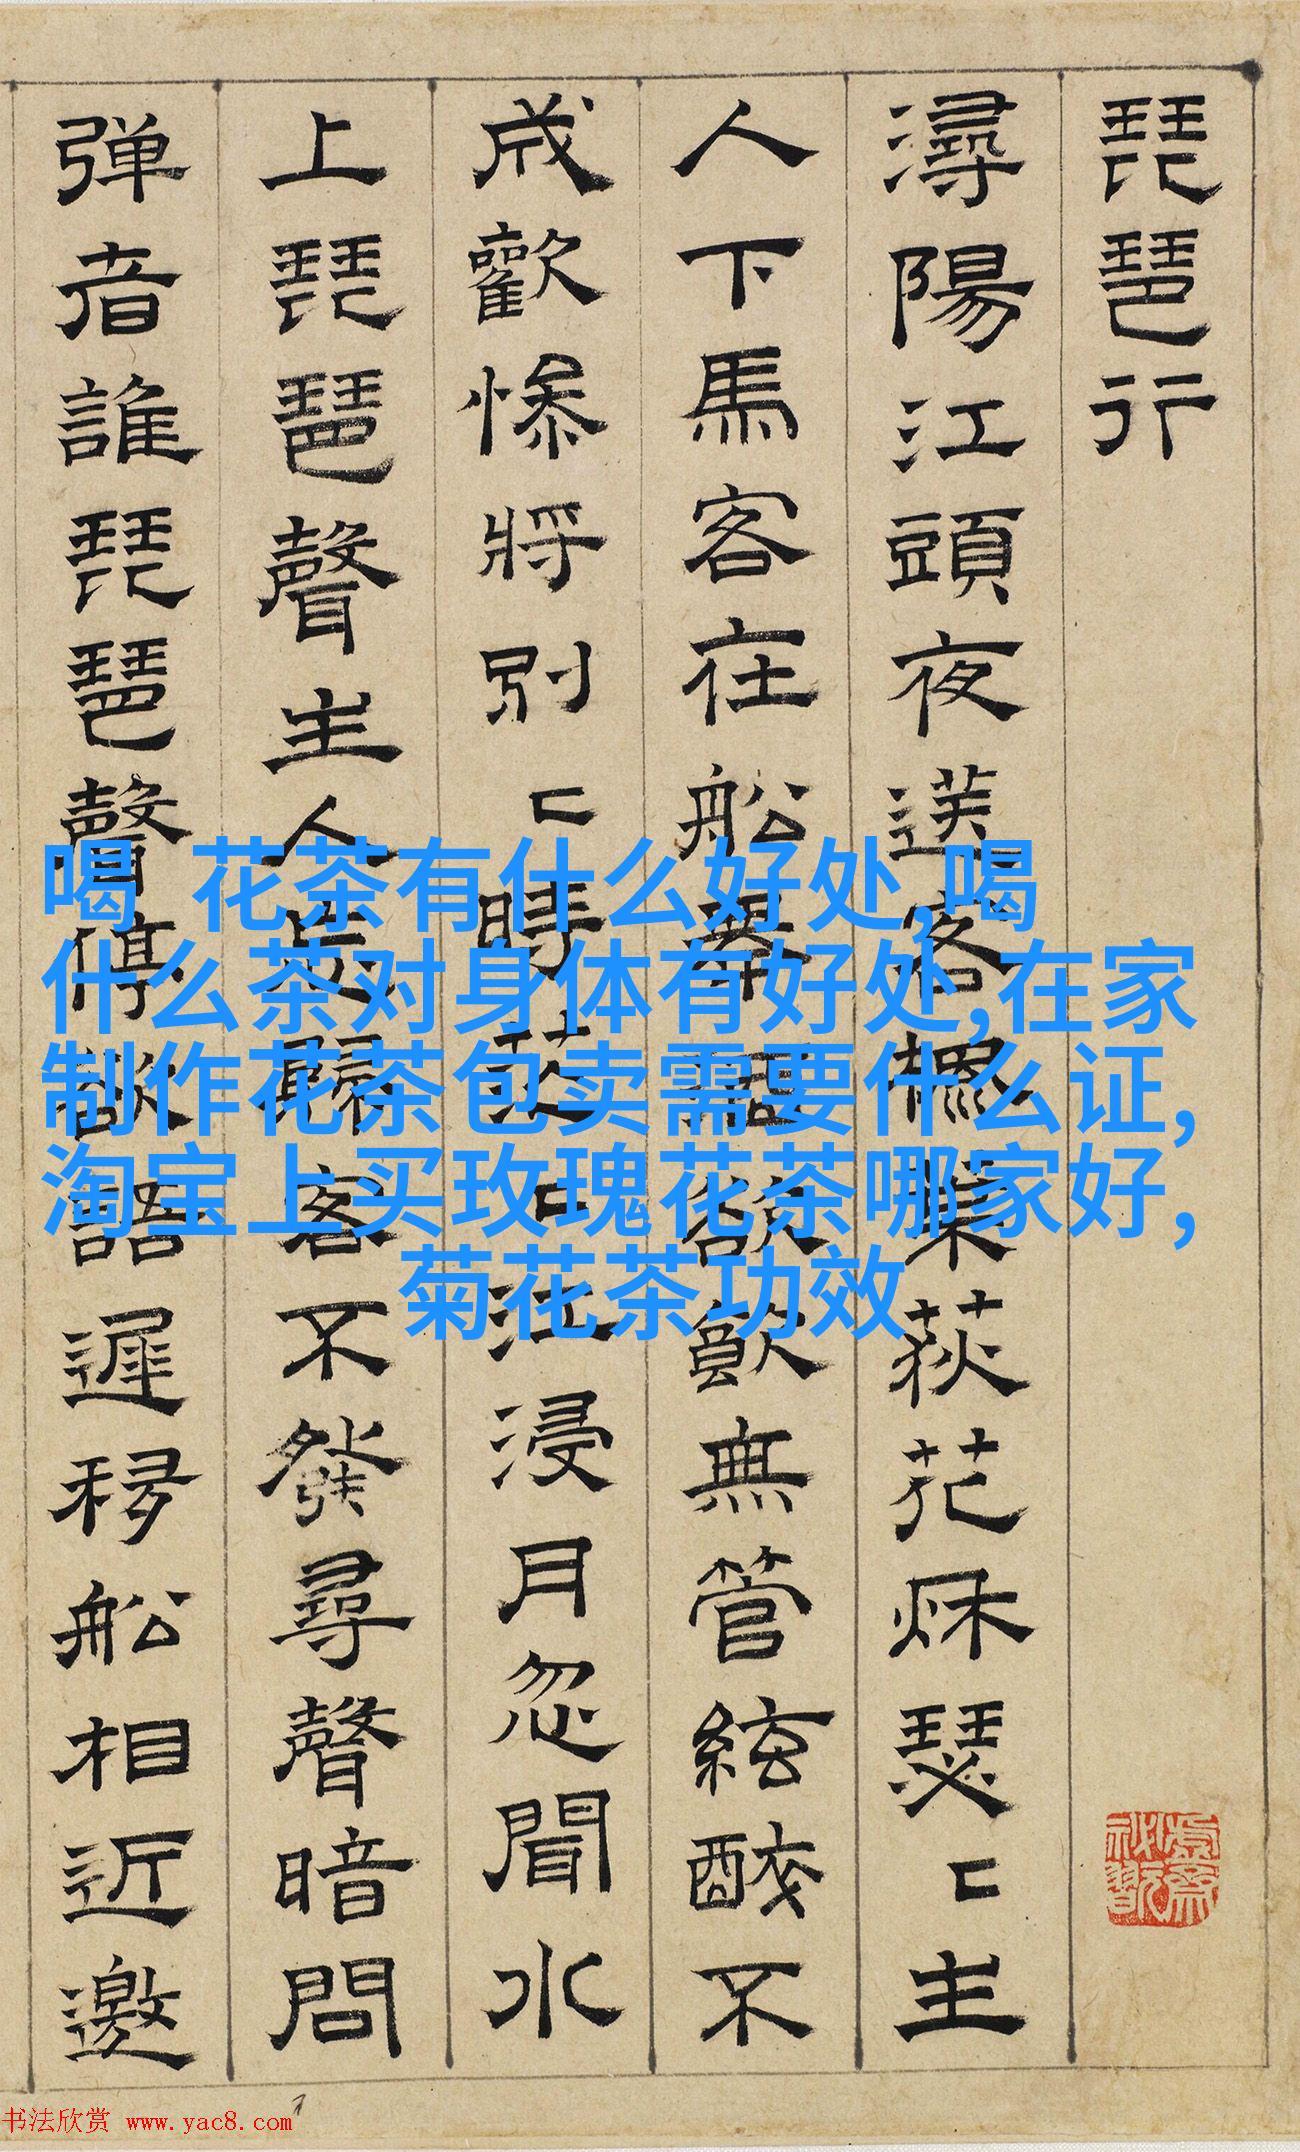 琵琶行
潯陽江頭夜送客楓葉荻花秌瑟〻主
人下馬客在船舉酒欲飲無管絃醉不
成歡慘將別〻時茫〻江浸月忽聞水
上琵琶聲主人忘歸客不發尋聲暗問
弹者誰琵琶聲停欲語遲移船相近邀
喝 花茶有什么好处,喝
什么茶对身体有好处,在家
制作花茶包卖需要什么证,
淘宝上买玫瑰花茶哪家好,
菊花茶功效
书法欣赏 www.yac8.com